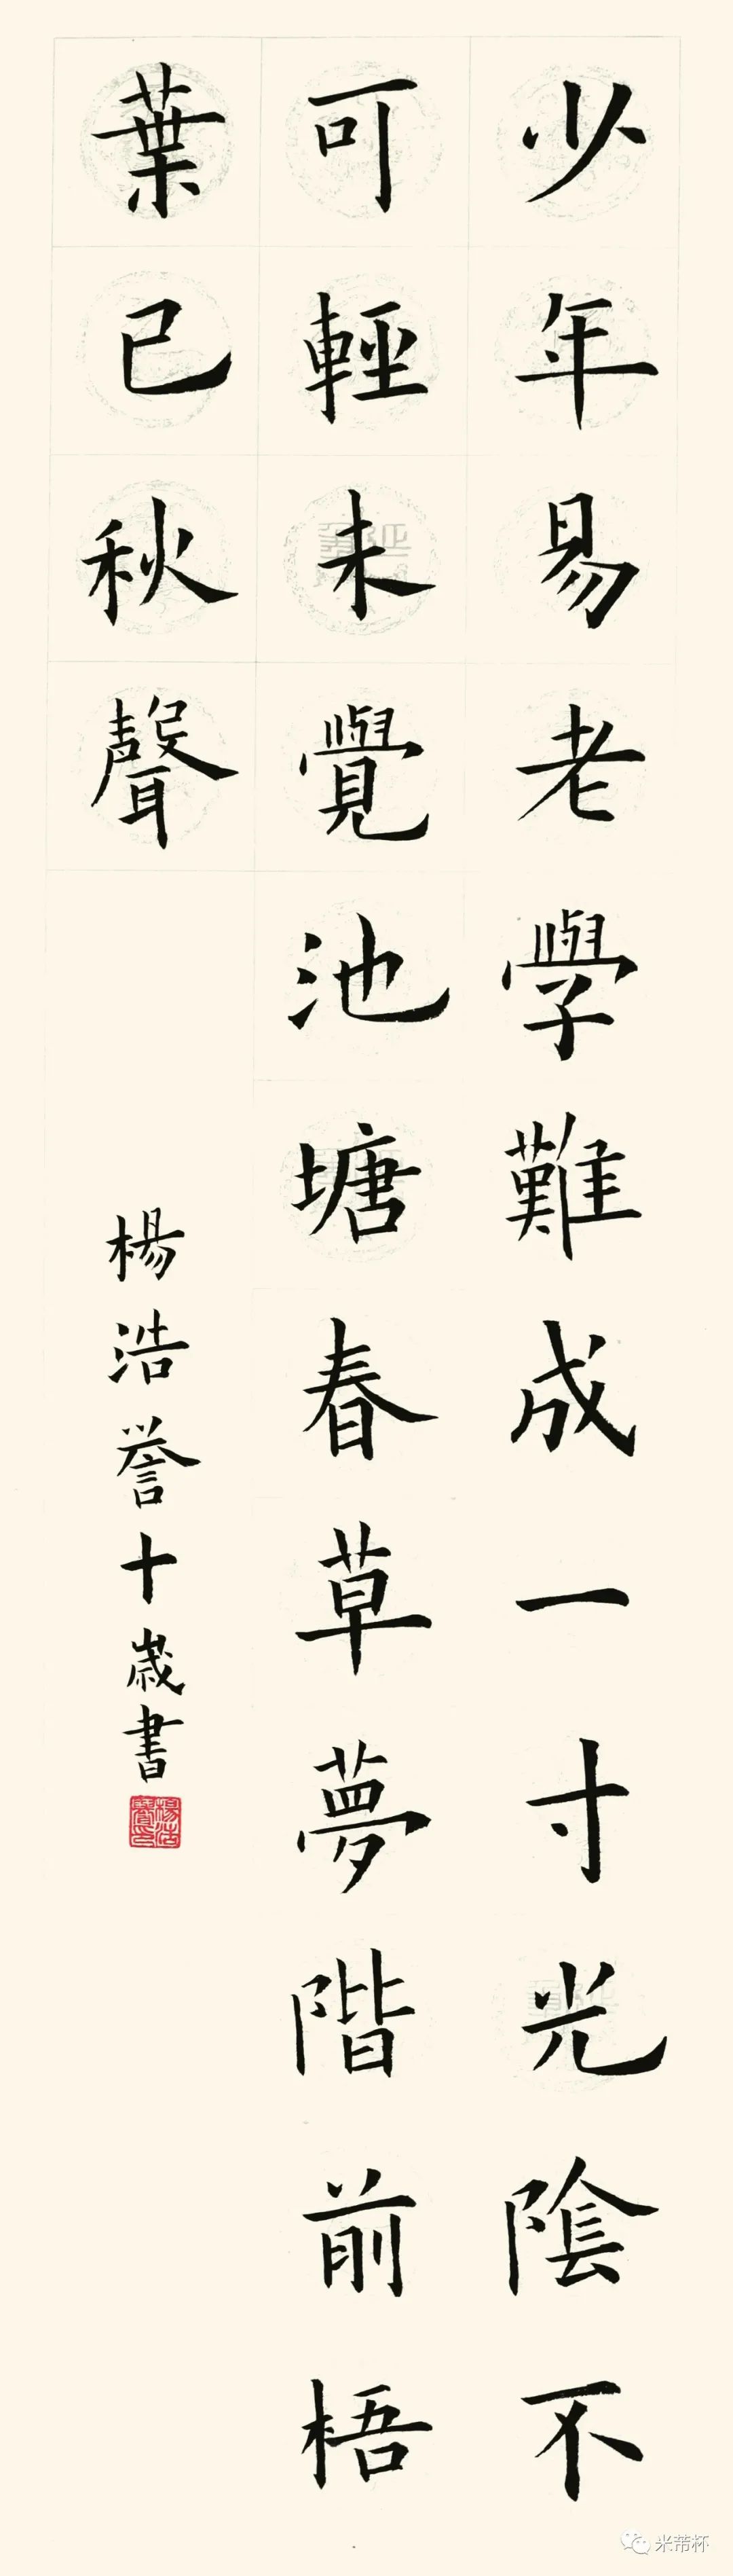 少年易老學難成一寸光陰不
可輕未覺池塘春草夢階前梧
葉已秋聲
楊浩誉十歲書
米芾杯